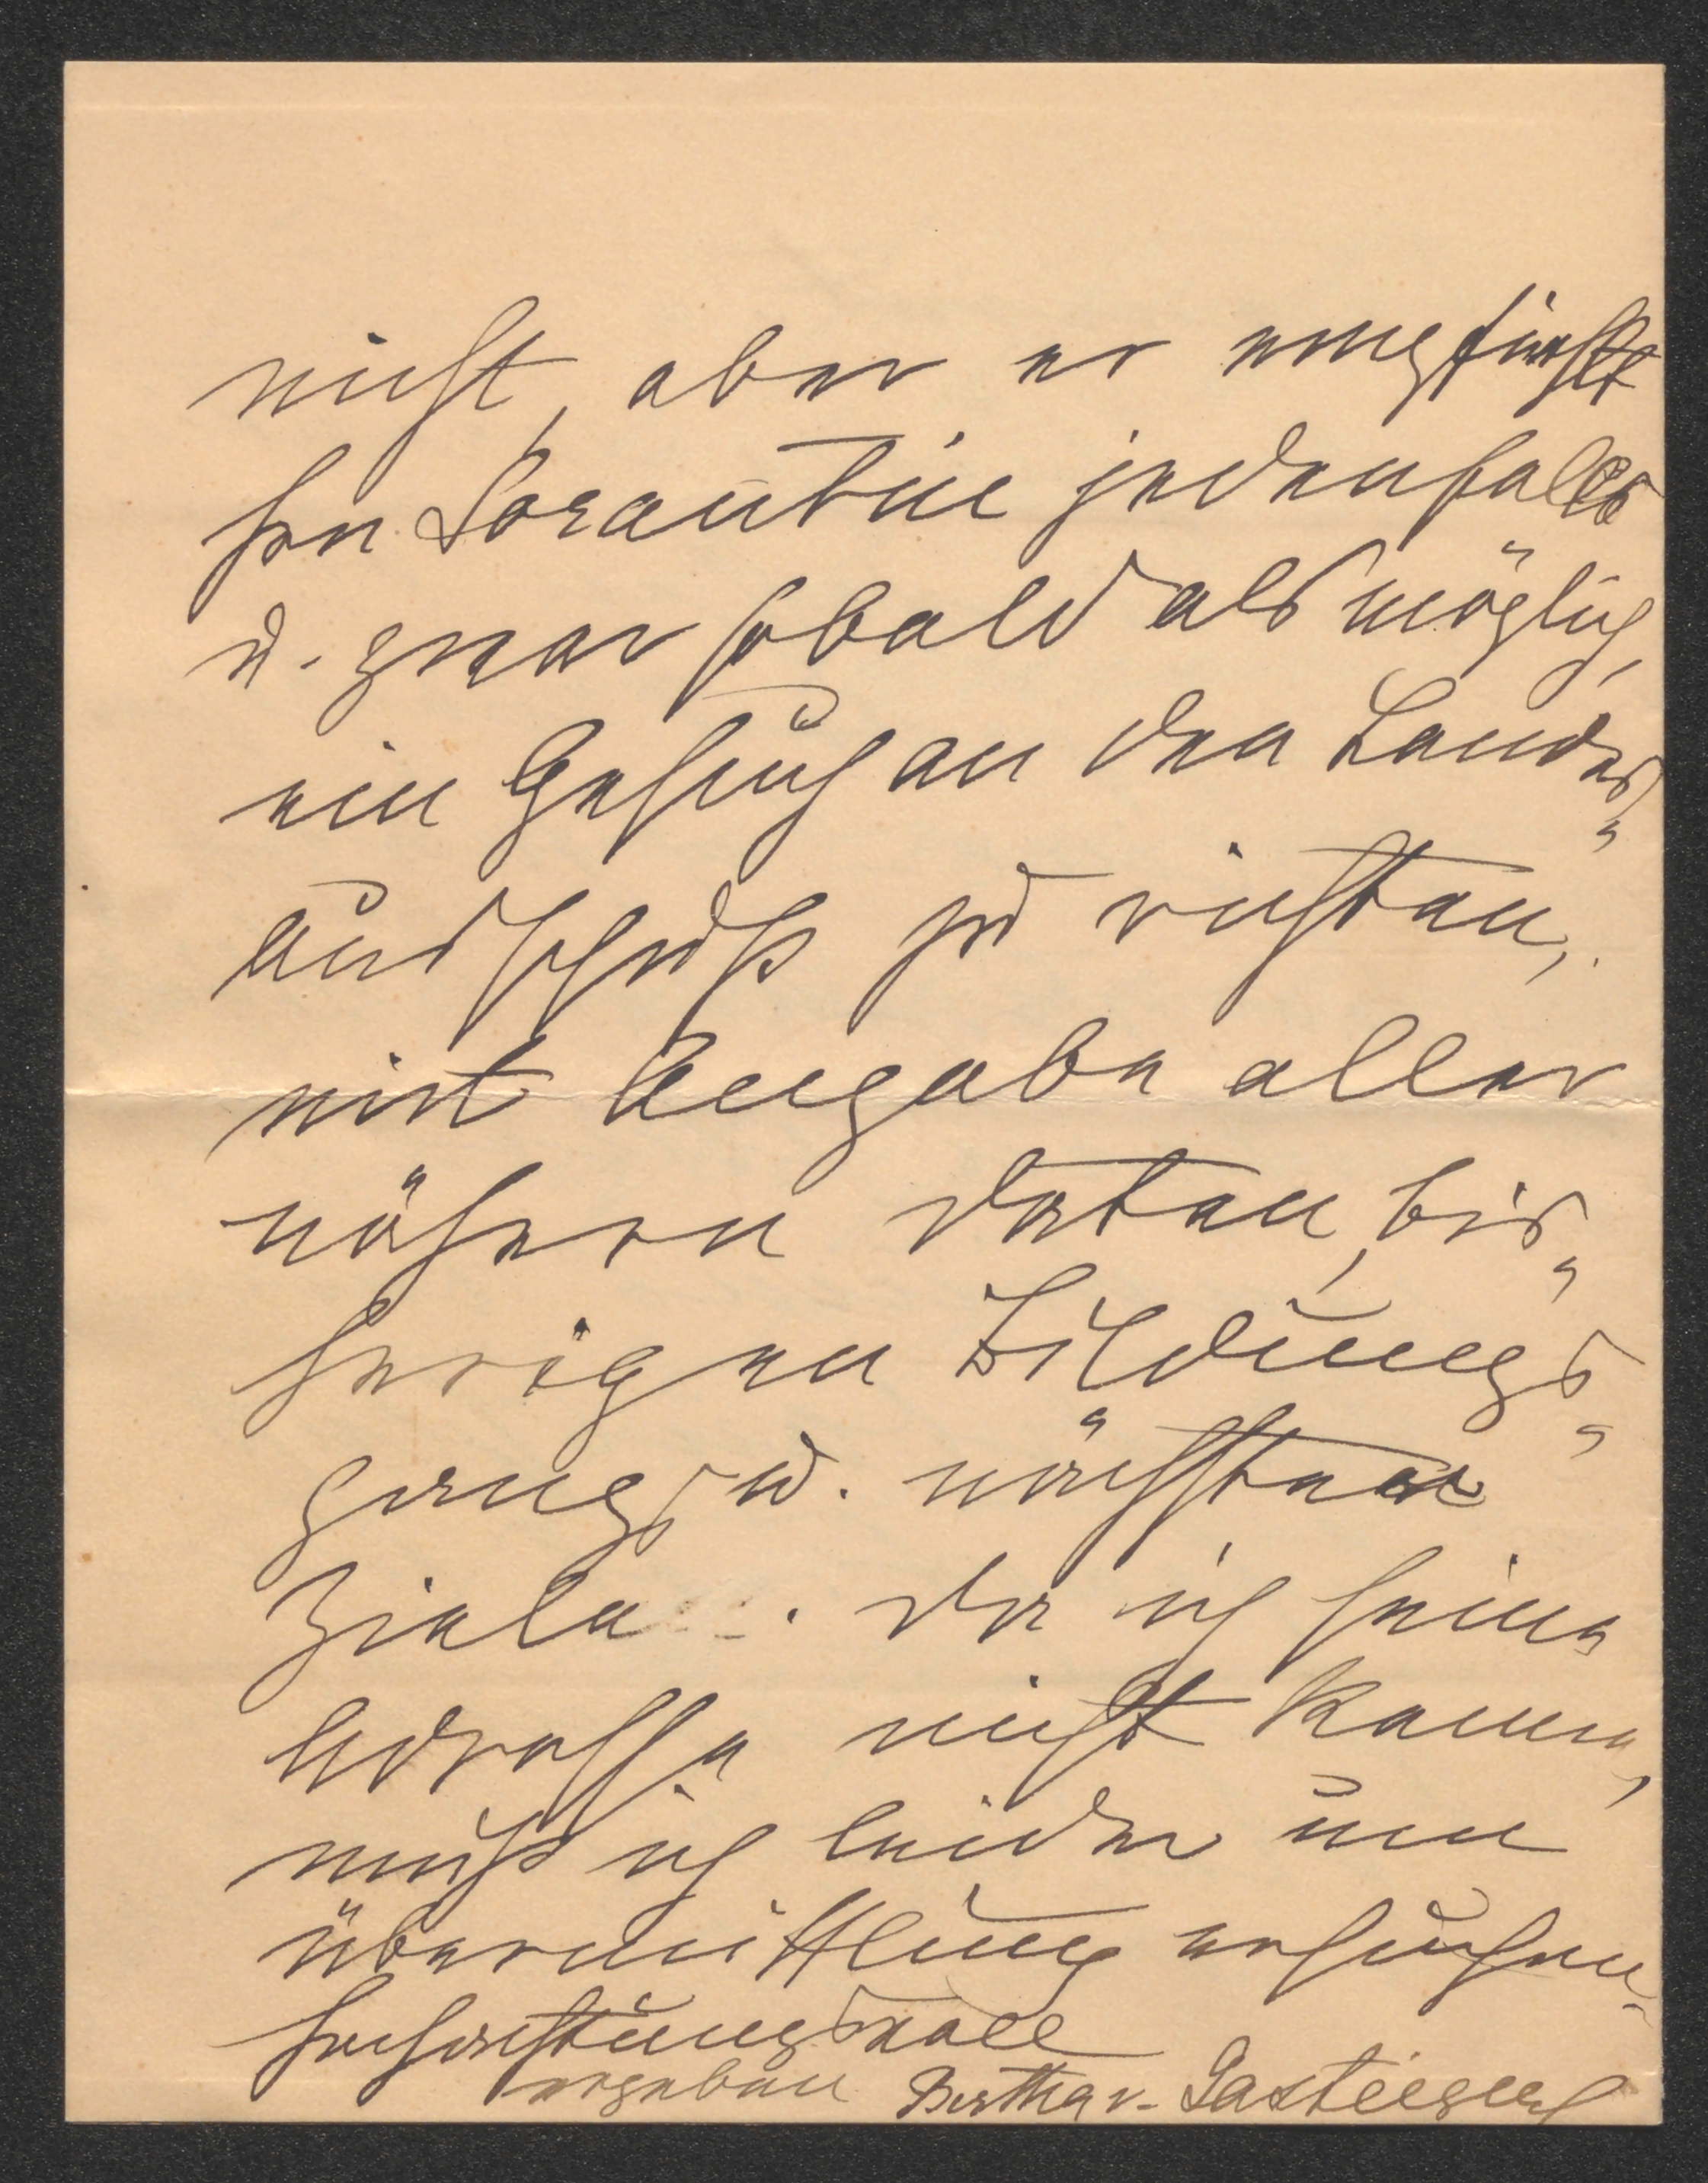 nicht, aber er empfiehlt
Hrn. Sorantin jedenfalls
u. zwar sobald als möglich,
ein Gesuch an den Landes„
ausschuß zu richten,
mit Angabe aller
nähern Daten, bis„
herigen Bildungs„
gangs u. nächsten
Ziele. Da ich seine
Adresse nicht kenne,
muß ich leider um
Übermittlung ersuchen.
Hochachtungsvoll
ergeben Bertha v.